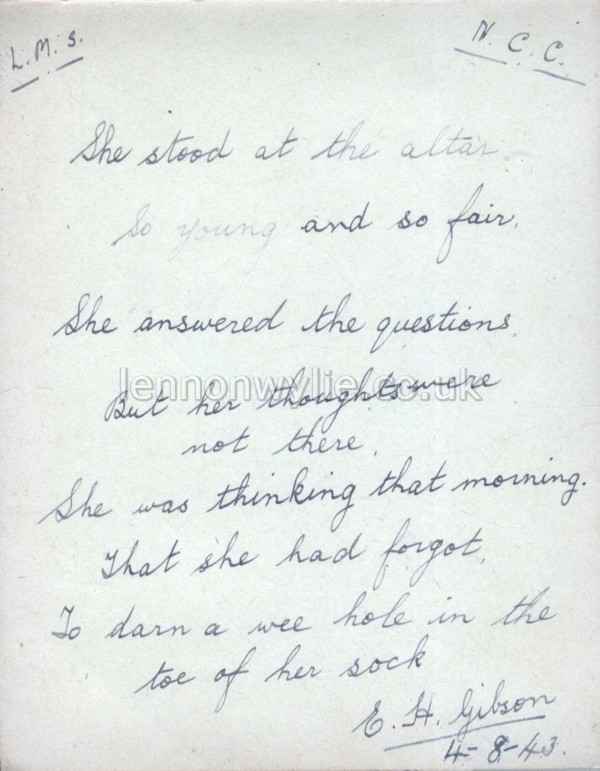 L. M. S.
N. C. C.
She stood at the altar
So young and so fair.
She answered the questions
lennonwylie.co.uk
But her thoughts were
not there.
She was thinking that morning.
That she had forgot.
To darn a wee hole in the
toe of her sock
E. H. Gibson
4-8-43.